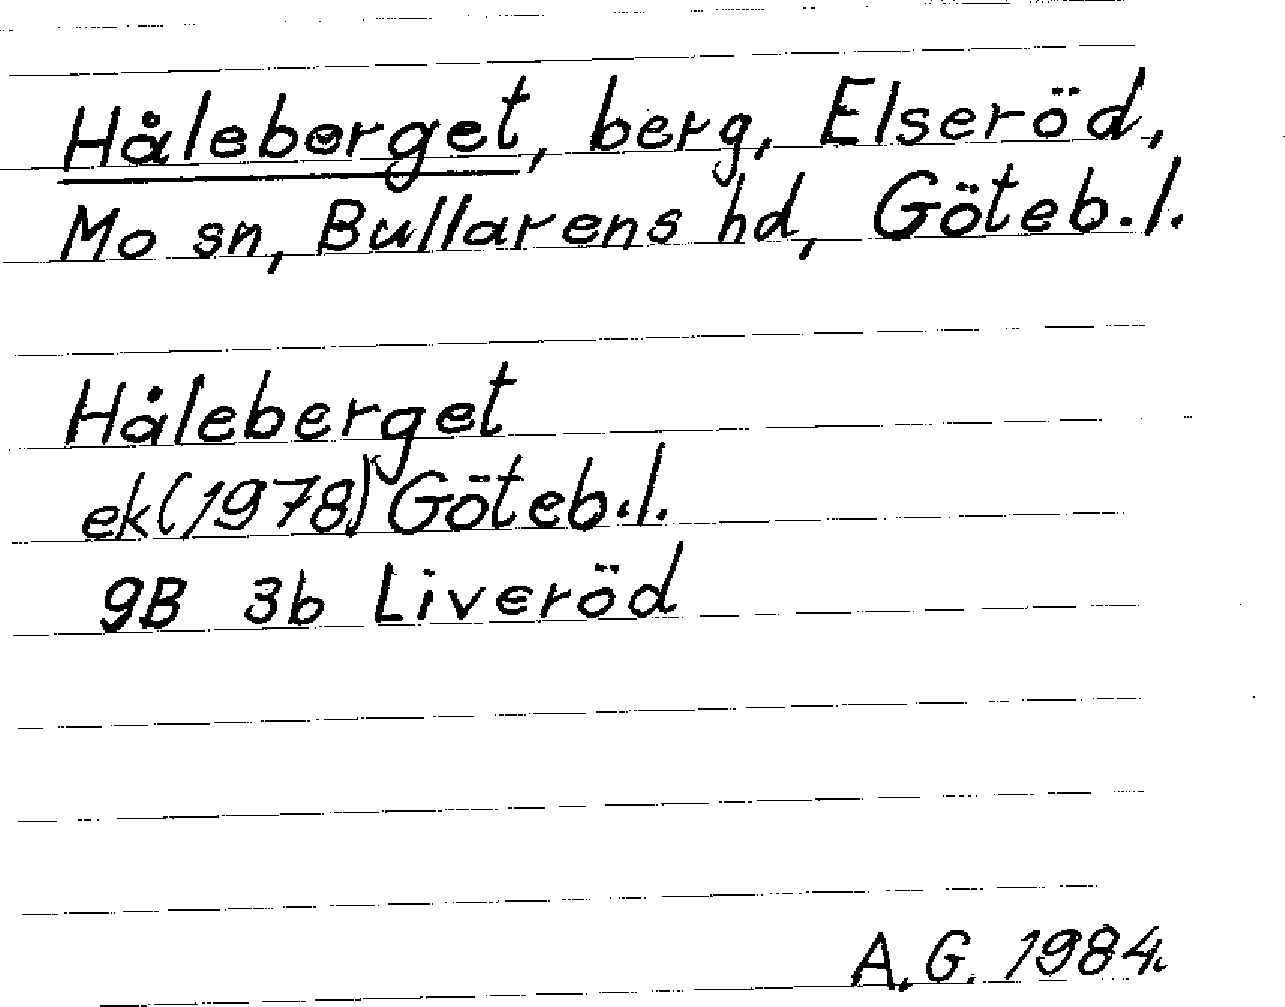 Håleberget, berg, Elseröd,
Mo sn, Bullarens hd, Göteb.l.
Håleberget
ek(1978) Göteb.l.
9B 3b Liveröd
A.G. 1984.